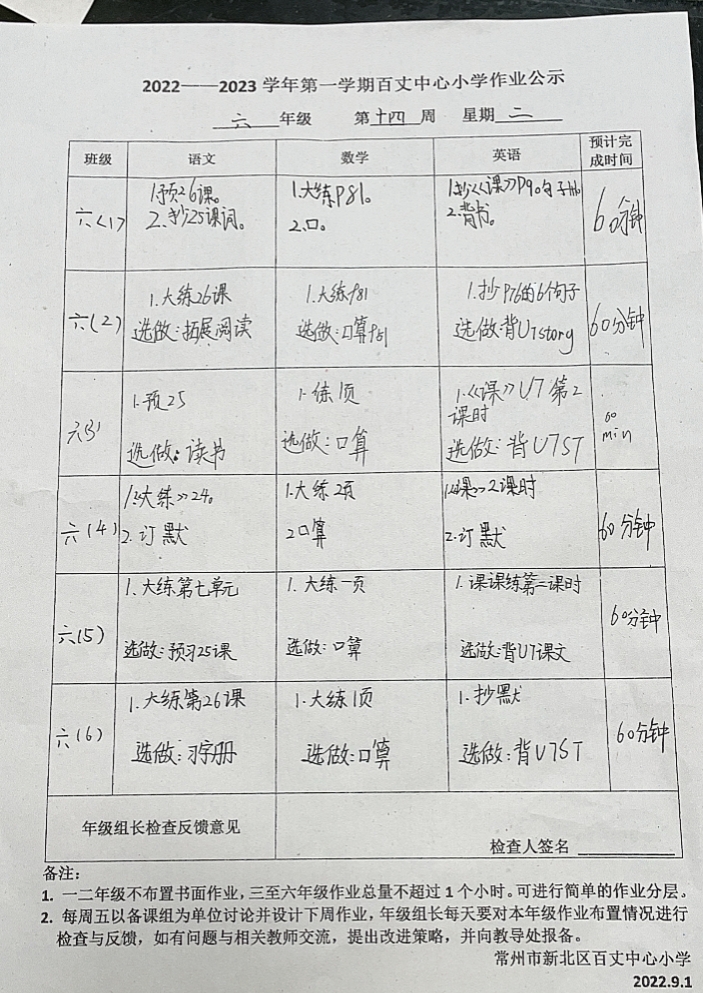 2022——2023 学年第一学期百丈中心小学作业公示
六 年级 第十四 周 星期 二
班级 语文 数学 英语 预计完成时间
六(1)
1.预26课。
2.抄25课词。
1.大练P81。
2.口。
1.抄《课》P90句子
2.背书。
60分钟
六(2)
1.大练26课
选做:拓展阅读
1.大练P81
选做:口算P51
1.抄P76的6个句子
选做:背U7story
60分钟
六(3)
1.预25
选做:读书
1.练1页
选做:口算
1.《课》U7 第2
课时
选做:背U7ST
60
min
六(4)
1.《大练》24。
2.订默
1.大练2页
2口算
1.《课》2课时
2.订默
60分钟
六(5)
1.大练第七单元
选做:预习25课
1.大练一页
选做:口算
1.课课练第二课时
选做:背U7课文
60分钟
六(6)
1.大练第26课
选做:习字册
1.大练1页
选做:口算
1.抄默
选做:背U7ST
60分钟
年级组长检查反馈意见
检查人签名
备注:
1. 一二年级不布置书面作业,三至六年级作业总量不超过1个小时。可进行简单的作业分层。
2. 每周五以备课组为单位讨论并设计下周作业,年级组长每天要对本年级作业布置情况进行
检查与反馈,如有问题与相关教师交流,提出改进策略,并向教导处报备。
常州市新北区百丈中心小学
2022.9.1